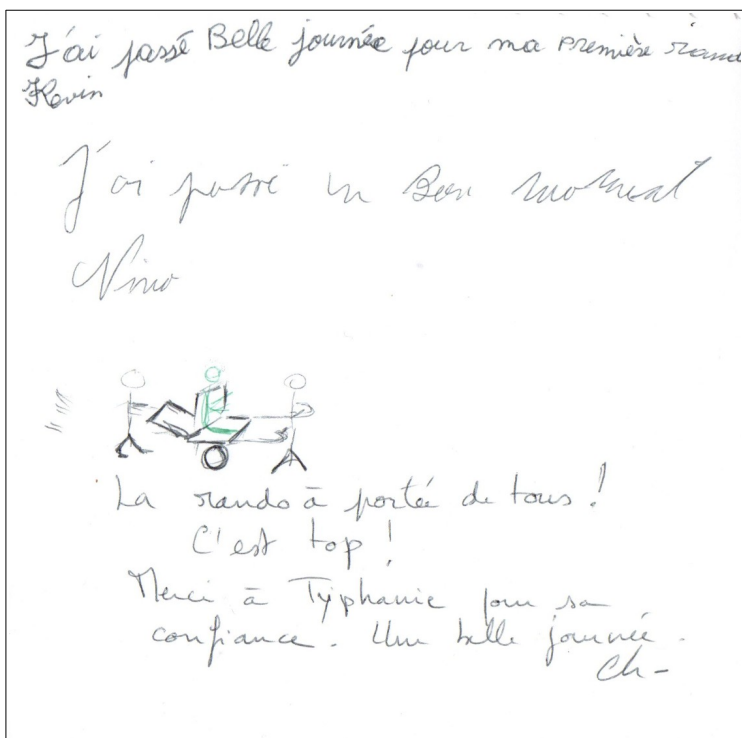 J'ai passé Belle journée pour ma première rand
Kevin
J'ai passé un Bon moment
Nino
La rando à portée de tous !
C'est top !
Merci à Typhanie pour sa
confiance. Une belle journée.
Ch-